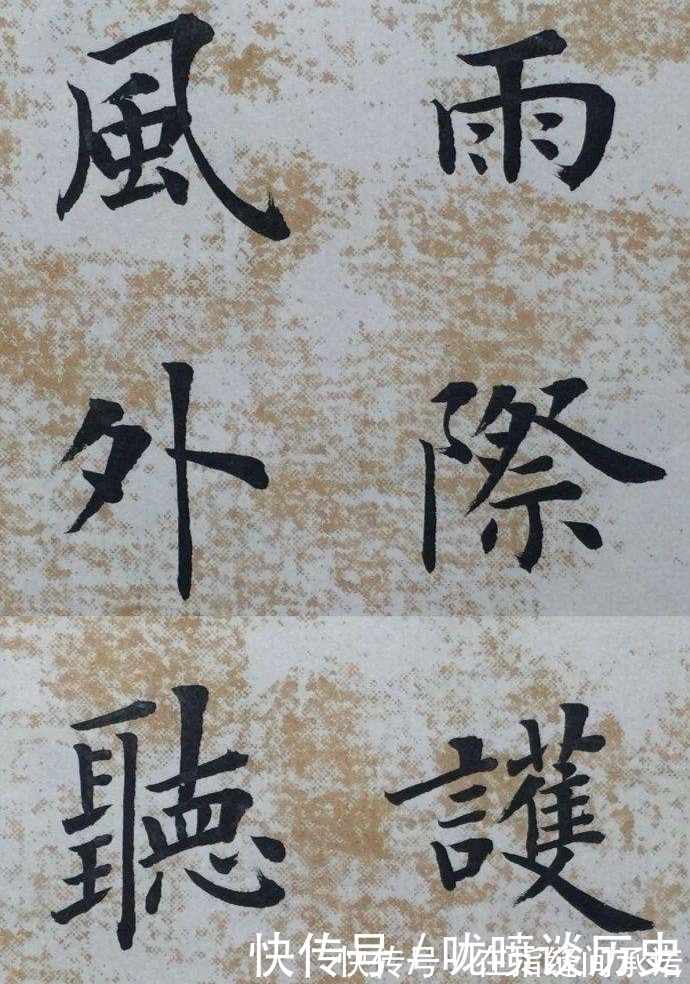 風雨
外際
聽護
快传号 / 咙喷谈历史